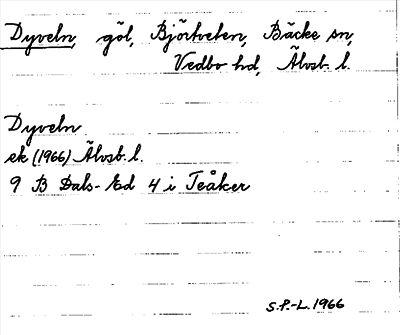 Dyveln, göl, Björtveten, Bäcke sn,
Vedbo hd, Älvsb. l.
Dyveln
ek (1966) Älvsb. l.
9 B Dals-Ed 4 i Teåker
S.P.-L. 1966